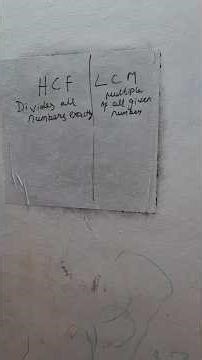 HCF
Divides all
numbers exactly
LCM
multiple
of all given
numbers